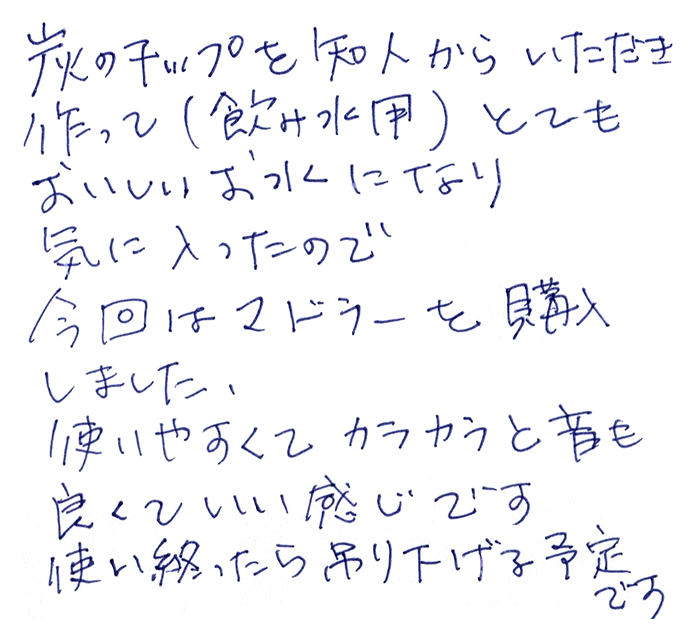 炭のチップを知人からいただき
作って(飲み水用)とても
おいしいお水になり
気に入ったので
今回はマドラーを購入
しました、
使いやすくてカラカラと音も
良くていい感じです
使い終ったら吊り下げる予定
です